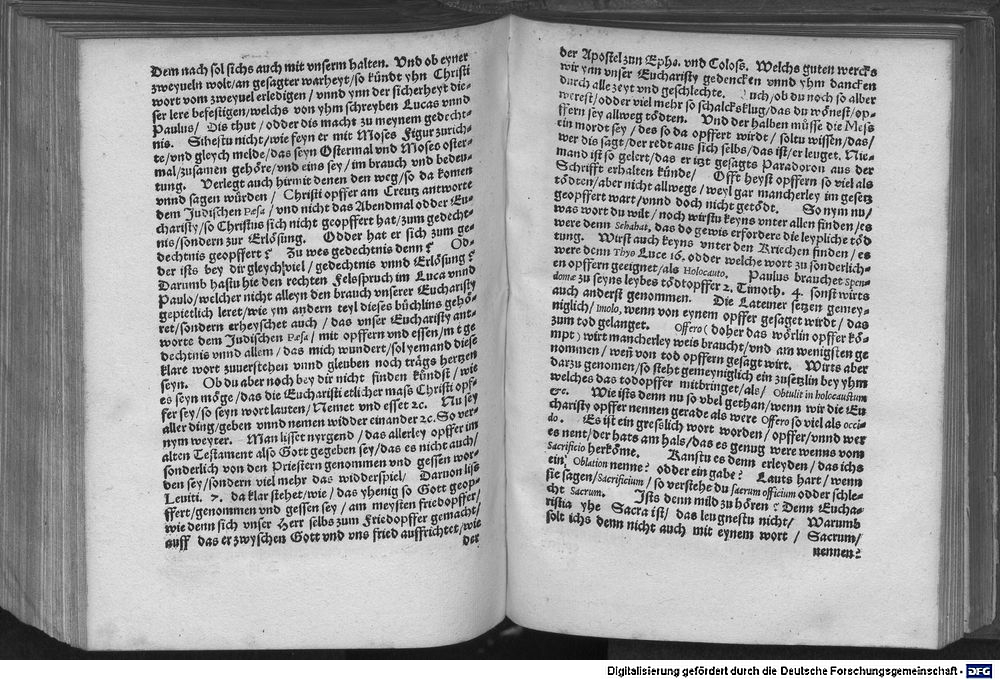 Dem nach sol sichs auch mit vnserm halten. Vnd ob eyner
zweyueln wolt/an gesagter warheyt/so kündt yhn Christi
wort vom zweyuel erledigen/vnnd ynn der sicherheyt die-
ser lere befestigen/welchs von yhm schreyben Lucas vnnd
Paulus/ Dis thut/odder dis macht zu meynem gedecht-
nis. Sihestu nicht/wie feyn er mit Moses Figur zurich-
te/vnd gleych melde/das seyn Ostermal vnd Moses oster-
mal/zusamen gehöre/vnd eins sey/im brauch vnd bedeu-
tung. Verlegt auch hirmit denen den weg/so da komen
vnnd sagen würden/ Christi opffer am Creutz antworte
dem Judischen Pæsa/vnd nicht das Abendmal odder Eu-
charisty/so Christus sich nicht geopffert hat/zum gedecht-
nis/sondern zur Erlösung. Odder hat er sich zum ge-
dechtnis geopffert? Zu wes gedechtnis denn? Od-
der ists bey dir gleych viel/gedechtnis vnnd Erlösung?
Darumb hastu hie den rechten Felsspruch im Luca vnnd
Paulo/welcher nicht alleyn den brauch vnserer Eucharisty
gepietlich leret/wie ym andern teyl dieses büchlins gehö-
ret/sondern erheyschet auch/das vnser Eucharisty ant-
worte dem Judischen Pæsa/mit opffern vnd essen/mit ge
dechtnis vnnd allem/das mich wundert/sol yemand diese
klare wort zuuerstehen vnnd gleuben noch träges hertzen
seyn. Ob du aber noch bey dir nicht finden kündst/wie
es seyn möge/das die Eucharisti etlicher mass Christi opf-
fer sey/so seyn wort lauten/Nemet vnd esset ꝛc. Nu sey
aller ding/geben vnnd nemen widder einander ꝛc. So ver-
nym weyter. Man lisset nyrgend/das allerley opffer im
alten Testament also Gott gegeben sey/das es nicht auch/
sonderlich von den Priestern genommen vnd gessen wor-
den sey/sondern viel mehr das widderspiel/ Daruon liss
Leuiti. 7. da klar stehet/wie/das yhenig so Gott geop-
ffert/genommen vnd gessen sey/am meysten friedopffer/
wie denn sich vnser Herr selbs zum Friedopffer gemacht/
auff das er zwyschen Gott vnd vns fried auffrichtet/wie
der
der Apostel zun Ephe. vnd Coloss. Welchs guten wercks
wir ynn vnser Eucharisty gedencken vnnd yhm dancken
durch alle zeyt vnd geschlechte. uch/ob du noch so alber
werest/odder viel mehr so schalcksklug/das du wönest/op-
ffern sey allweg tödten. Vnd der halben müsse die Mess
ein mort sey/des so da opffert wirdt/soltu wissen/das/
wer dis sagt/der redt aus sich selbs/das ist/er leuget. Nie-
mand ist so gelert/das er itzt gesagts Paradoxon aus der
Schrifft erhalten künde/ Offt heyst opffern so viel als
tödten/aber nicht allwege/weyl gar mancherley im gesetz
geopffert wart/vnnd doch nicht getödt. So nym nu/
was wort du wilt/noch wirstu keyns vnter allen finden/es
were denn Schahat, das do gewis erfordere die leypliche töd
tung. Wirst auch keyns vnter den Kriechen finden/es
were denn Thyo Luce 16. odder welche wort zu sonderlich-
en opffern geeignet/als Holocauto. Paulus brauchet Spen-
domæ zu seyns leybes tödtopffer 2. Timoth. 4. sonst wirts
auch anderst genommen. Die Lateiner setzen gemey-
niglich/Imolo, wenn von eynem opffer gesaget wirdt/das
zum tod gelanget. Offero (doher das wörlin opffer kö-
mpt) wirt mancherley weis braucht/vnd am wenigsten ge
nommen/wen̄ von tod opffern gesagt wirt. Wirts aber
darzu genomen/so steht gemeyniglich ein zusetzlin bey yhm
welches das todopffer mitbringet/als/ Obtulit in holocaustum
&c. Wie ists denn nu so vbel gethan/wenn wir die Eu
charisty opffer nennen gerade als were Offero so viel als occi-
do. Es ist ein gresslich wort worden/opffer/vnnd wer
es nent/der hats am hals/das es genug were wenns vom
Sacrificio herköme. Kanstu es denn erleyden/das ichs
ein Oblation nenne? odder ein gabe? Lauts hart/wenn
sie sagen/Sacrificium/so verstehe du sacrum officium odder schle-
cht Sacrum. Ists denn mild zu hören? Denn Eucha-
ristia yhe Sacra ist/das leugnestu nicht/ Warumb
solt ichs denn nicht auch mit eynem wort/Sacrum/
nennen?
Digitalisierung gefördert durch die Deutsche Forschungsgemeinschaft - DFG